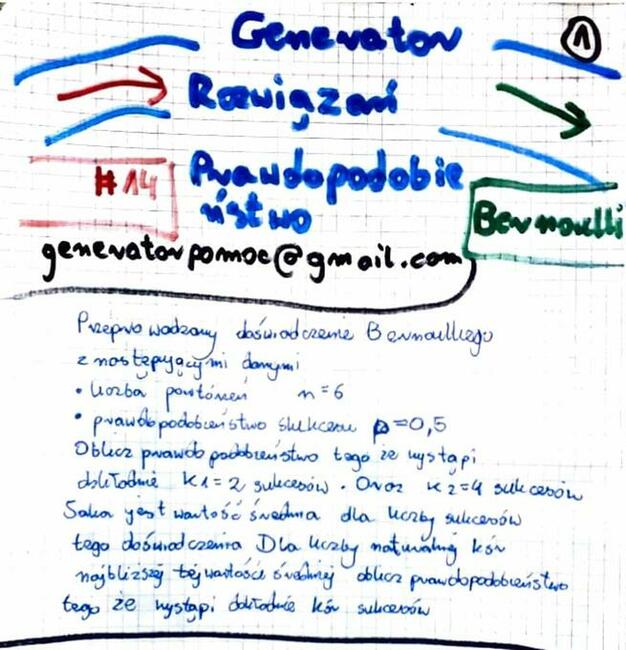 Generator
1
Rozwiązań
#14
Prawdopodobie
ństwo
Bernoulli
generatorpomoc@gmail.com
Przeprowadzamy doświadczenie Bernoulliego
z następującymi danymi
• liczba powtórzeń n=6
• prawdopodobieństwo sukcesu p=0,5
Oblicz prawdopodobieństwo tego że wystąpi
dokładnie k1=2 sukcesów. Oraz k2=4 sukcesów
Jaka jest wartość średnia dla liczby sukcesów
tego doświadczenia Dla liczby naturalnej kśr
najbliższej tej wartości średniej oblicz prawdopodobieństwo
tego że wystąpi dokładnie kśr sukcesów